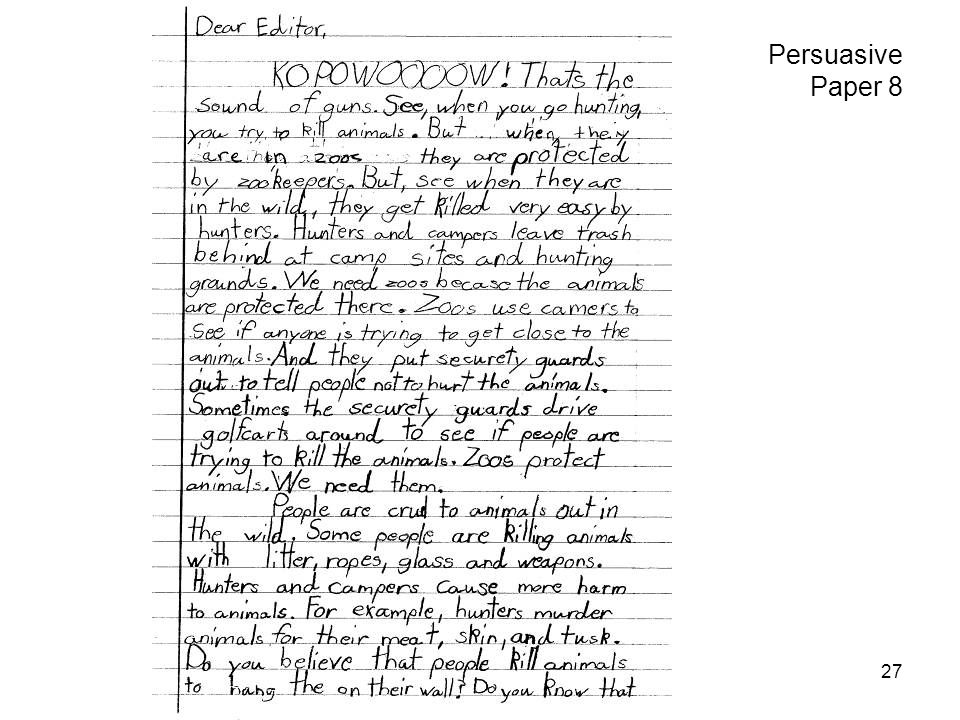 Dear Editor,
KOPOWOOOOW! Thats the
sound of guns. See, when you go hunting,
you try to kill animals. But when they
are in zoos they are protected
by zookeepers. But, see when they are
in the wild, they get killed very easy by
hunters. Hunters and campers leave trash
behind at camp sites and hunting
grounds. We need zoos becase the animals
are protected there. Zoos use camers to
see if anyone is trying to get close to the
animals. And they put securety guards
out to tell people not to hurt the animals.
Sometimes the securety guards drive
golfcarts around to see if people are
trying to kill the animals. Zoos protect
animals. We need them.
People are crul to animals out in
the wild. Some people are killing animals
with litter, ropes, glass and weapons.
Hunters and campers cause more harm
to animals. For example, hunters murder
animals for their meat, skin, and tusk.
Do you believe that people kill animals
to hang the on their wall? Do you know that
Persuasive
Paper 8
27